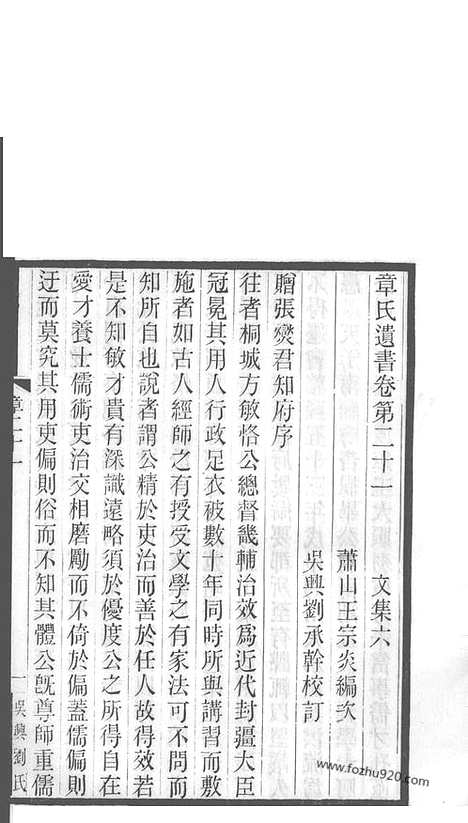 章氏遺書卷第二十一 文集六
蕭山王宗炎編次
吳興劉承幹校訂
贈張燮君知府序
往者桐城方敏恪公總督畿輔治效爲近代封疆大臣
冠冕其用人行政足衣被數十年同時所與講習而敷
施者如古人經師之有授受文學之有家法可不問而
知所自也說者謂公精於吏治而善於任人故得效若
是不知敏才貴有深識遠略須於優度公之所得自在
愛才養士儒術吏治交相磨勵而不倚於偏蓋儒偏則
迂而莫究其用吏偏則俗而不知其體公旣尊師重儒
章二十一
一
吳興劉氏
www.fozhu920.com